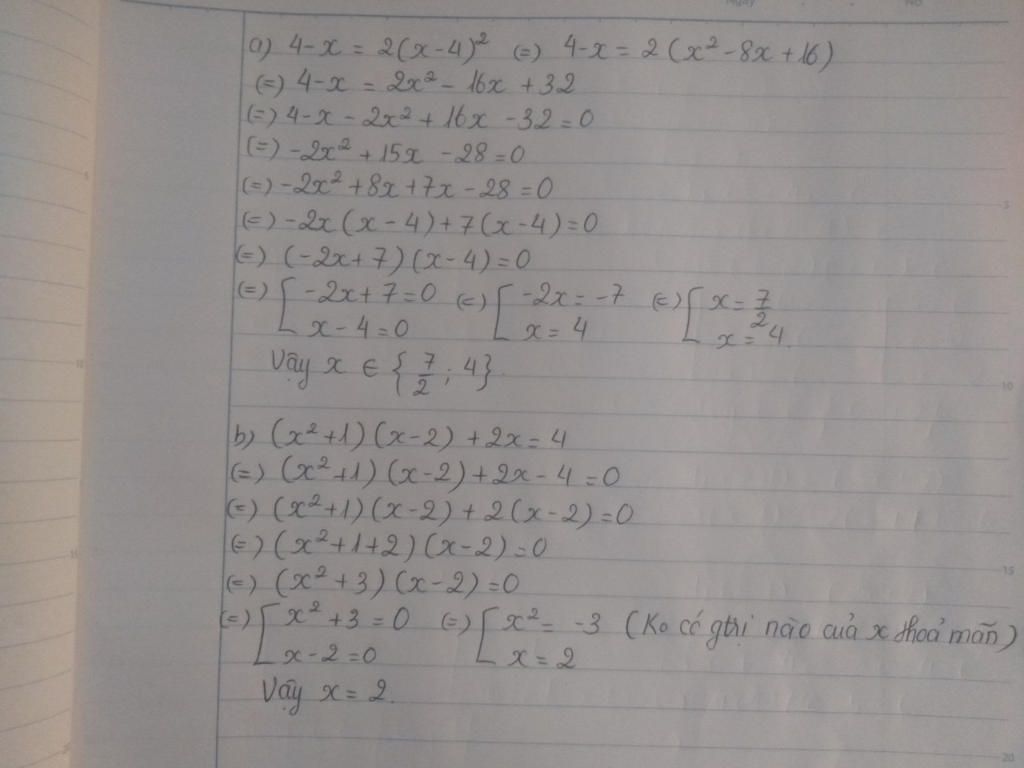 a) 4-x = 2(x-4)² (=) 4-x = 2(x²-8x+16)
(=) 4-x = 2x² - 16x + 32
(=) 4-x - 2x² + 16x - 32 = 0
(=) -2x² + 15x - 28 = 0
(=) -2x² + 8x + 7x - 28 = 0
(=) -2x(x-4) + 7(x-4) = 0
(=) (-2x+7)(x-4) = 0
(=) [ -2x+7 = 0 (=) [ -2x = -7 (=) [ x = 7/2
x-4 = 0 x = 4 x = 4.
Vậy x ∈ {7/2; 4}.
b) (x²+1)(x-2) + 2x = 4
(=) (x²+1)(x-2) + 2x - 4 = 0
(=) (x²+1)(x-2) + 2(x-2) = 0
(=) (x²+1+2)(x-2) = 0
(=) (x²+3)(x-2) = 0
(=) [ x²+3 = 0 (=) [ x² = -3 (Ko có gtrị nào của x thoả mãn)
x-2 = 0 x = 2
Vậy x = 2.
5
10
15
20